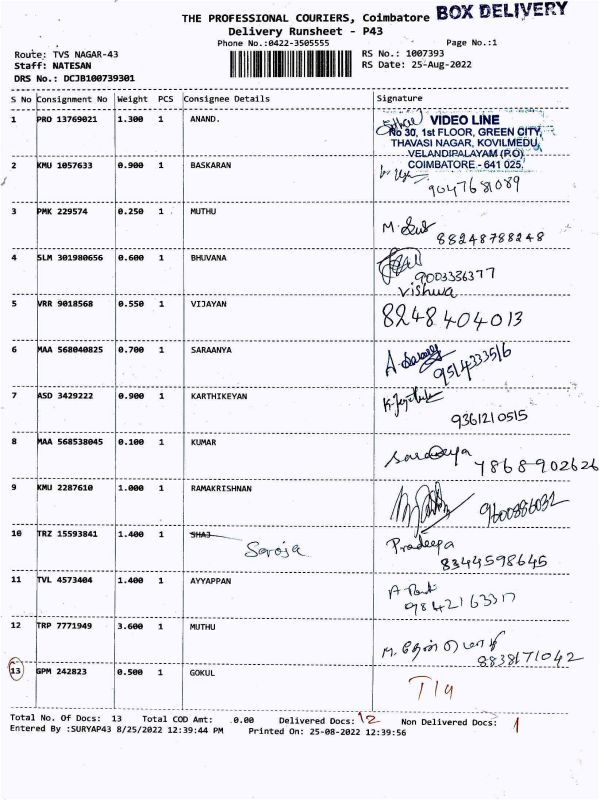 THE PROFESSIONAL COURIERS, Coimbatore BOX DELIVERY
Delivery Runsheet - P43
Phone No.:0422-3505555 Page No.:1
Route: TVS NAGAR-43 RS No.: 1007393
Staff: NATESAN RS Date: 25-Aug-2022
DRS No.: DCJB100739301
S No Consignment No Weight PCS Consignee Details Signature
1 PRO 13769021 1.300 1 ANAND.
VIDEO LINE
No 30, 1st FLOOR, GREEN CITY,
THAVASI NAGAR, KOVILMEDU,
VELANDIPALAYAM (P.O)
COIMBATORE - 641 025.
2 KMU 1057633 0.900 1 BASKARAN
9047681089
3 PMK 229574 0.250 1 MUTHU
88248788248
4 SLM 301980656 0.600 1 BHUVANA
9003336377
Vishwa
5 VRR 9018568 0.550 1 VIJAYAN 8248404013
6 MAA 568040825 0.700 1 SARAANYA
9514333516
7 ASD 3429222 0.900 1 KARTHIKEYAN
9361210515
8 MAA 568538045 0.100 1 KUMAR
7868902626
9 KMU 2287610 1.000 1 RAMAKRISHNAN
9600886032
10 TRZ 15593841 1.400 1 SHAJ Saroja Pradeepa
8344598645
11 TVL 4573404 1.400 1 AYYAPPAN
12 TRP 7771949 3.600 1 MUTHU
8838171042
13 GPM 242823 0.500 1 GOKUL
Total No. Of Docs: 13 Total COD Amt: 0.00 Delivered Docs: 12 Non Delivered Docs: 1
Entered By :SURYAP43 8/25/2022 12:39:44 PM Printed On: 25-08-2022 12:39:56